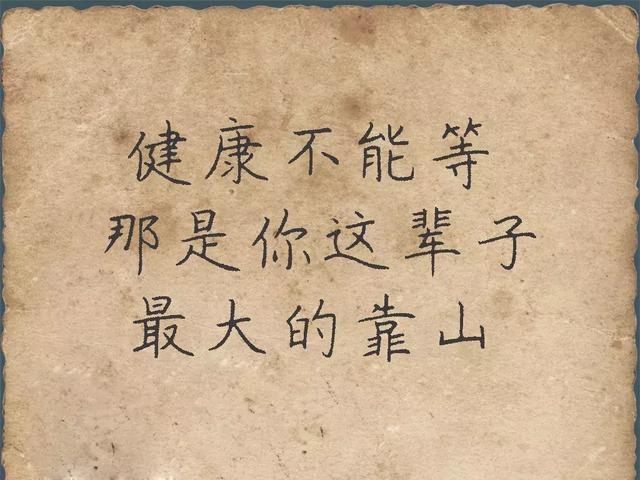 健康不能等
那是你这辈子
最大的靠山